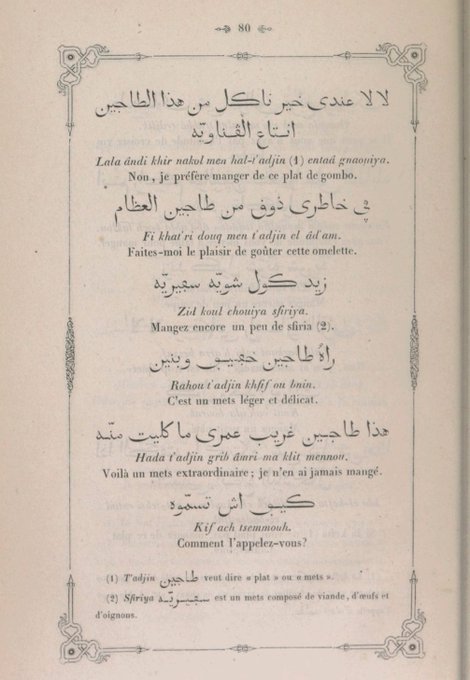 80
لا لا عندي خير ناكل من هذا الطاجين
انتاع الڨناويّه
Lala ândi khir nakol men hal-t'adjin (1) entaâ gnaouiya.
Non, je préfère manger de ce plat de gombo.
في خاطري ذوق من طاجين العظام
Fi khat'ri douq men t'adjin el âd'am.
Faites-moi le plaisir de goûter cette omelette.
زيد كول شويّه سفيريّه
Zid koul chouiya sfiriya.
Mangez encore un peu de sfiria (2).
راهُ طاجين خفيف وبنين
Rahou t'adjin khfif ou bnin.
C'est un mets léger et délicat.
هذا طاجين غريب عمري ما كليت منّه
Hada t'adjin grib âmri ma klit mennou.
Voilà un mets extraordinaire; je n'en ai jamais mangé.
كيف اش تسمّوه
Kif ach tsemmouh.
Comment l'appelez-vous?
(1) T'adjin طاجين veut dire « plat » ou « mets ».
(2) Sfiriya سفيريّه est un mets composé de viande, d'œufs et
d'oignons.